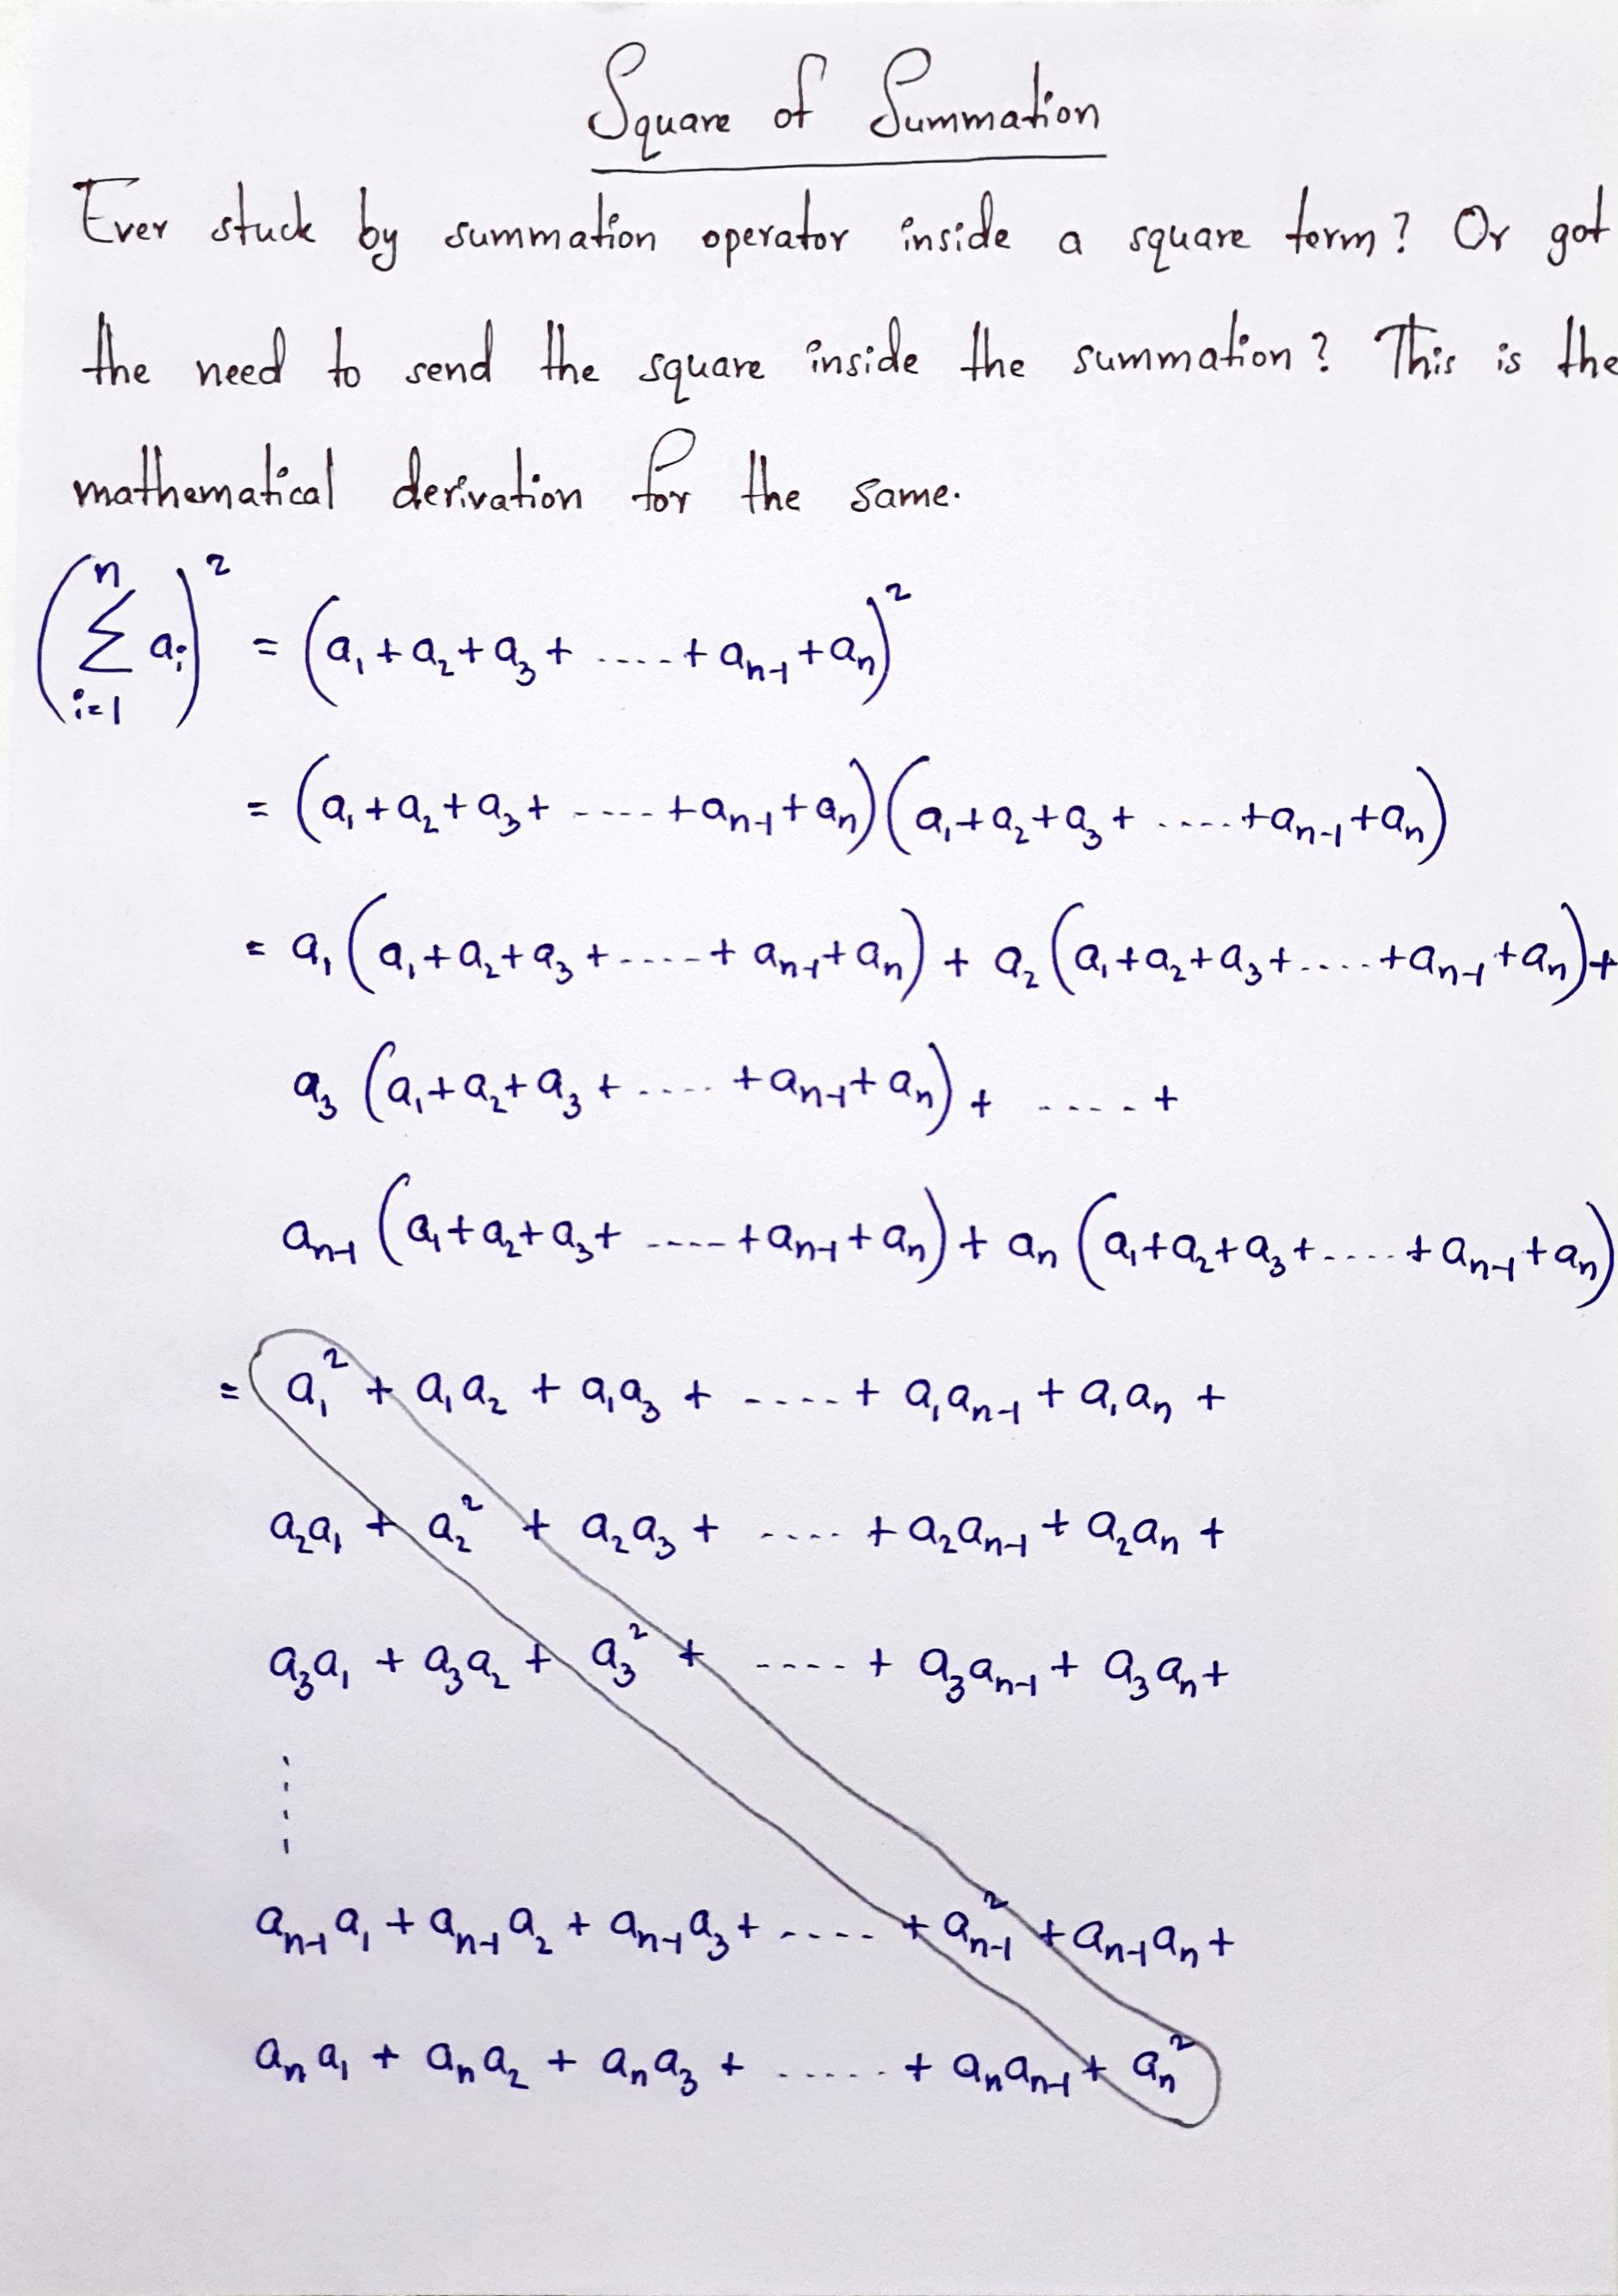 Square of Summation
Ever stuck by summation operator inside a square term? Or got
the need to send the square inside the summation? This is the
mathematical derivation for the same.
(∑_{i=1}^{n} aᵢ)² = (a₁ + a₂ + a₃ + ..... + aₙ₋₁ + aₙ)²
= (a₁ + a₂ + a₃ + ..... + aₙ₋₁ + aₙ)(a₁ + a₂ + a₃ + ..... + aₙ₋₁ + aₙ)
= a₁(a₁ + a₂ + a₃ + ..... + aₙ₋₁ + aₙ) + a₂(a₁ + a₂ + a₃ + ..... + aₙ₋₁ + aₙ) +
a₃(a₁ + a₂ + a₃ + ..... + aₙ₋₁ + aₙ) + ..... +
aₙ₋₁(a₁ + a₂ + a₃ + ..... + aₙ₋₁ + aₙ) + aₙ(a₁ + a₂ + a₃ + ..... + aₙ₋₁ + aₙ)
= a₁² + a₁a₂ + a₁a₃ + ..... + a₁aₙ₋₁ + a₁aₙ +
a₂a₁ + a₂² + a₂a₃ + ..... + a₂aₙ₋₁ + a₂aₙ +
a₃a₁ + a₃a₂ + a₃² + ..... + a₃aₙ₋₁ + a₃aₙ +
⋮
aₙ₋₁a₁ + aₙ₋₁a₂ + aₙ₋₁a₃ + ..... + aₙ₋₁² + aₙ₋₁aₙ +
aₙa₁ + aₙa₂ + aₙa₃ + ...... + aₙaₙ₋₁ + aₙ²